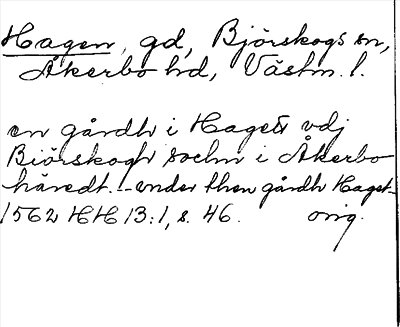 Hagen, gd, Björskogs sn,
Åkerbo hd, Västm. l.
en gårdh i Haget vdj
Biörskogh sochn i Åkerbo
häredt. - under then gårdh Haget -
1562 HH 13:1, s. 46. orig.